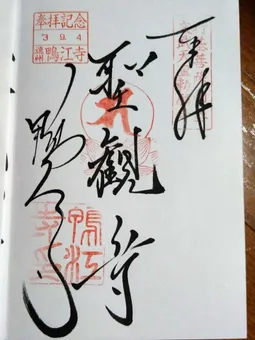 奉拝
聖観音
鴨江寺
奉拝記念
3 9.4
遠州 鴨江寺
鴨江寺印